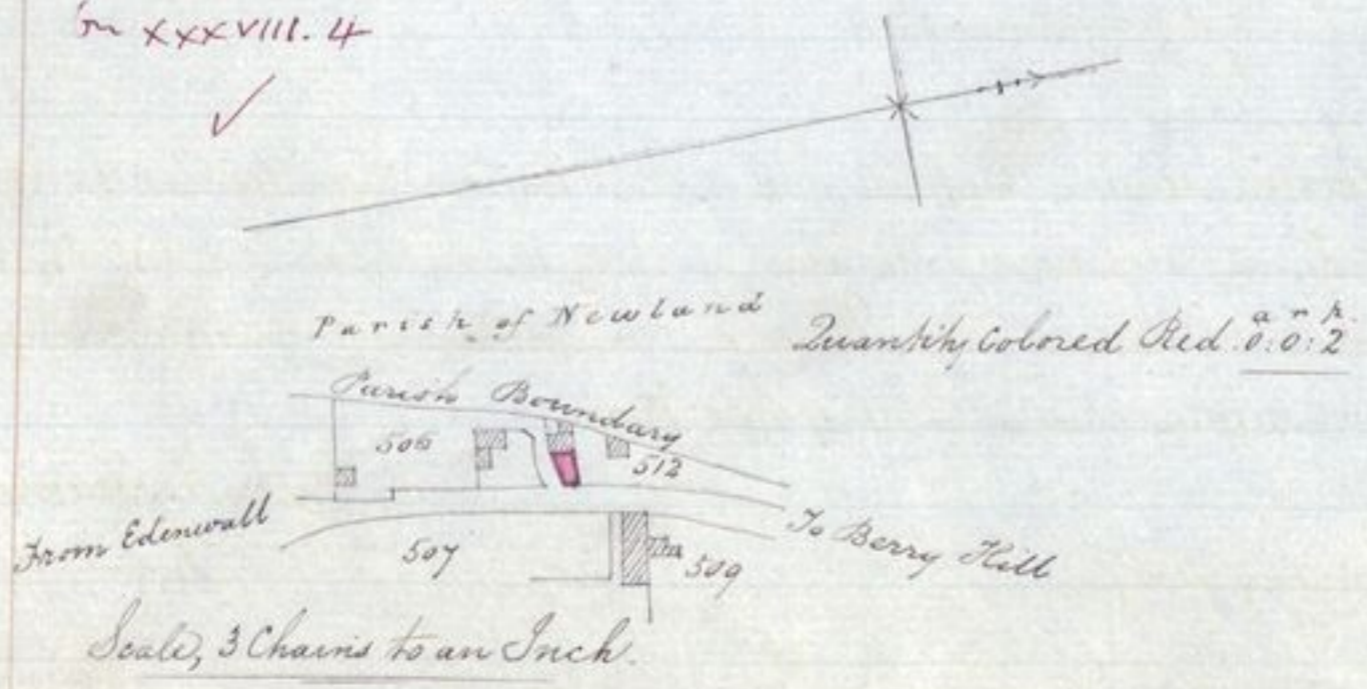 on XXXVIII. 4
Parish of Newland
a r p.
Quantity Colored Red. 0:0:2
Parish Boundary
506
512
From Edenwall
To Berry Hill
507
509
Scale, 3 Chains to an Inch.